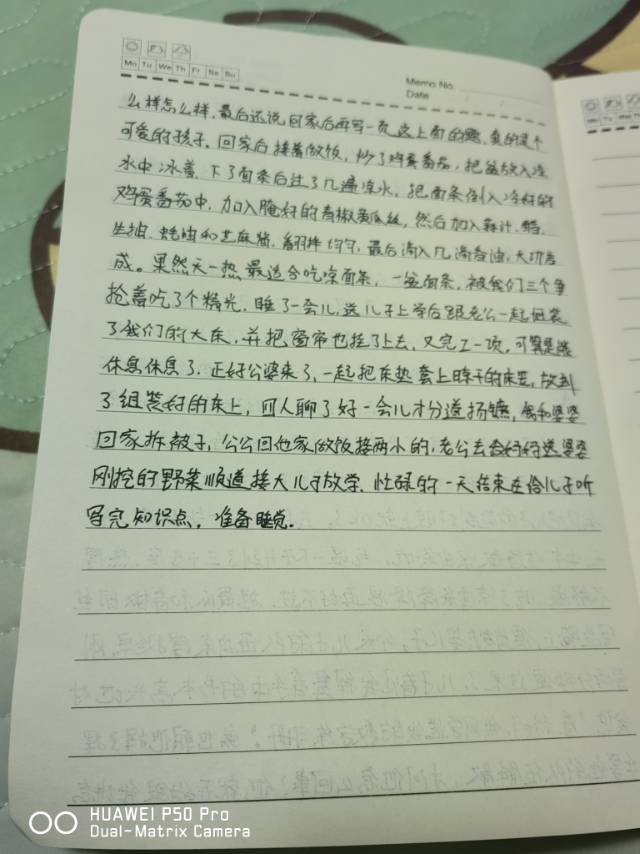 Mo Tu We Th Fr Sa Su
Memo No.
Date
么样怎么样,最后还说回家后再写一页这上面的题,真的是个
可爱的孩子。回家后接着做饭,炒了鸡蛋番茄,把盆放入冷
水中冰着,下了面条后过了几遍凉水,把面条倒入冷好的
鸡蛋番茄中,加入腌好的青椒黄瓜丝,然后加入蒜汁、醋、
生抽、蚝油和芝麻酱,翻拌均匀,最后滴入几滴香油,大功告
成。果然天一热,最适合吃凉面条,一盆面条,被我们三个争
抢着吃了个精光。睡了一会儿,送儿子上学后跟老公一起组装
了我们的大床,并把窗帘也挂了上去,又完工一项,可算是能
休息休息了,正好公婆来了,一起把床垫套上晾干的床笠,放到
了组装好的床上,四人聊了好一会儿才分道扬镳,我和婆婆
回家拆被子,公公回他家做饭接两小的,老公去给好好送婆婆
刚挖的野菜顺道接大儿子放学。忙碌的一天结束在给儿子听
写完知识点,准备睡觉。
HUAWEI P50 Pro
Dual-Matrix Camera